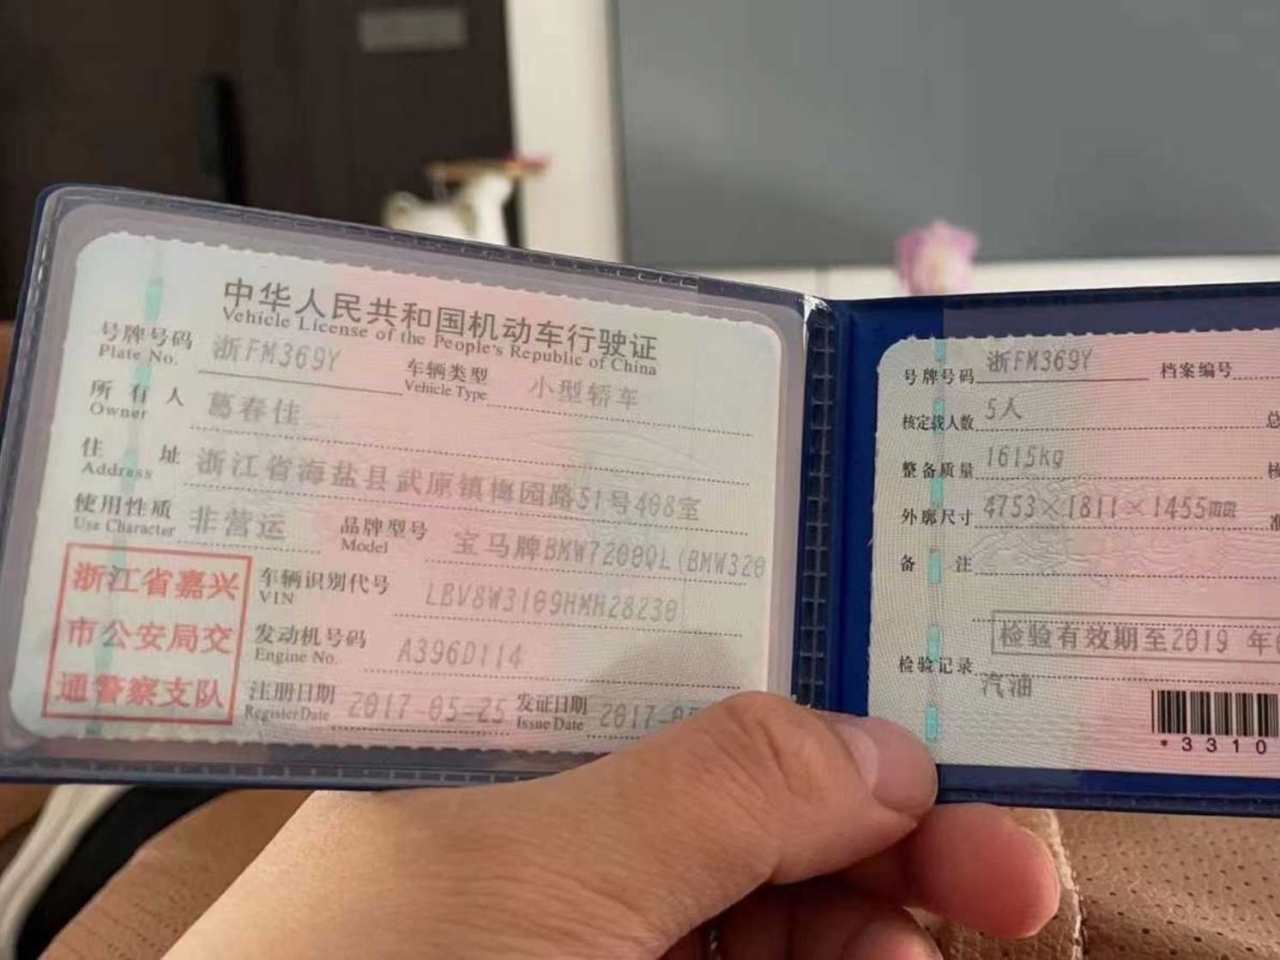 中华人民共和国机动车行驶证
Vehicle License of the People's Republic of China
号牌号码 浙FM369Y 车辆类型 小型轿车
Plate No. Vehicle Type
所有人 葛春佳
Owner
住址 浙江省海盐县武原镇梅园路51号408室
Address
使用性质 非营运 品牌型号 宝马牌BMW7200QL(BMW320
Use Character Model
浙江省嘉兴
市公安局交
通警察支队
车辆识别代号 LBV8W3109HMH28230
VIN
发动机号码 A396D114
Engine No.
注册日期 2017-05-25 发证日期 2017-05
Register Date Issue Date
号牌号码 浙FM369Y 档案编号
核定载人数 5人 总
整备质量 1615kg 核
外廓尺寸 4753×1811×1455mm 准
备注
检验有效期至2019 年
检验记录
汽油
*3310